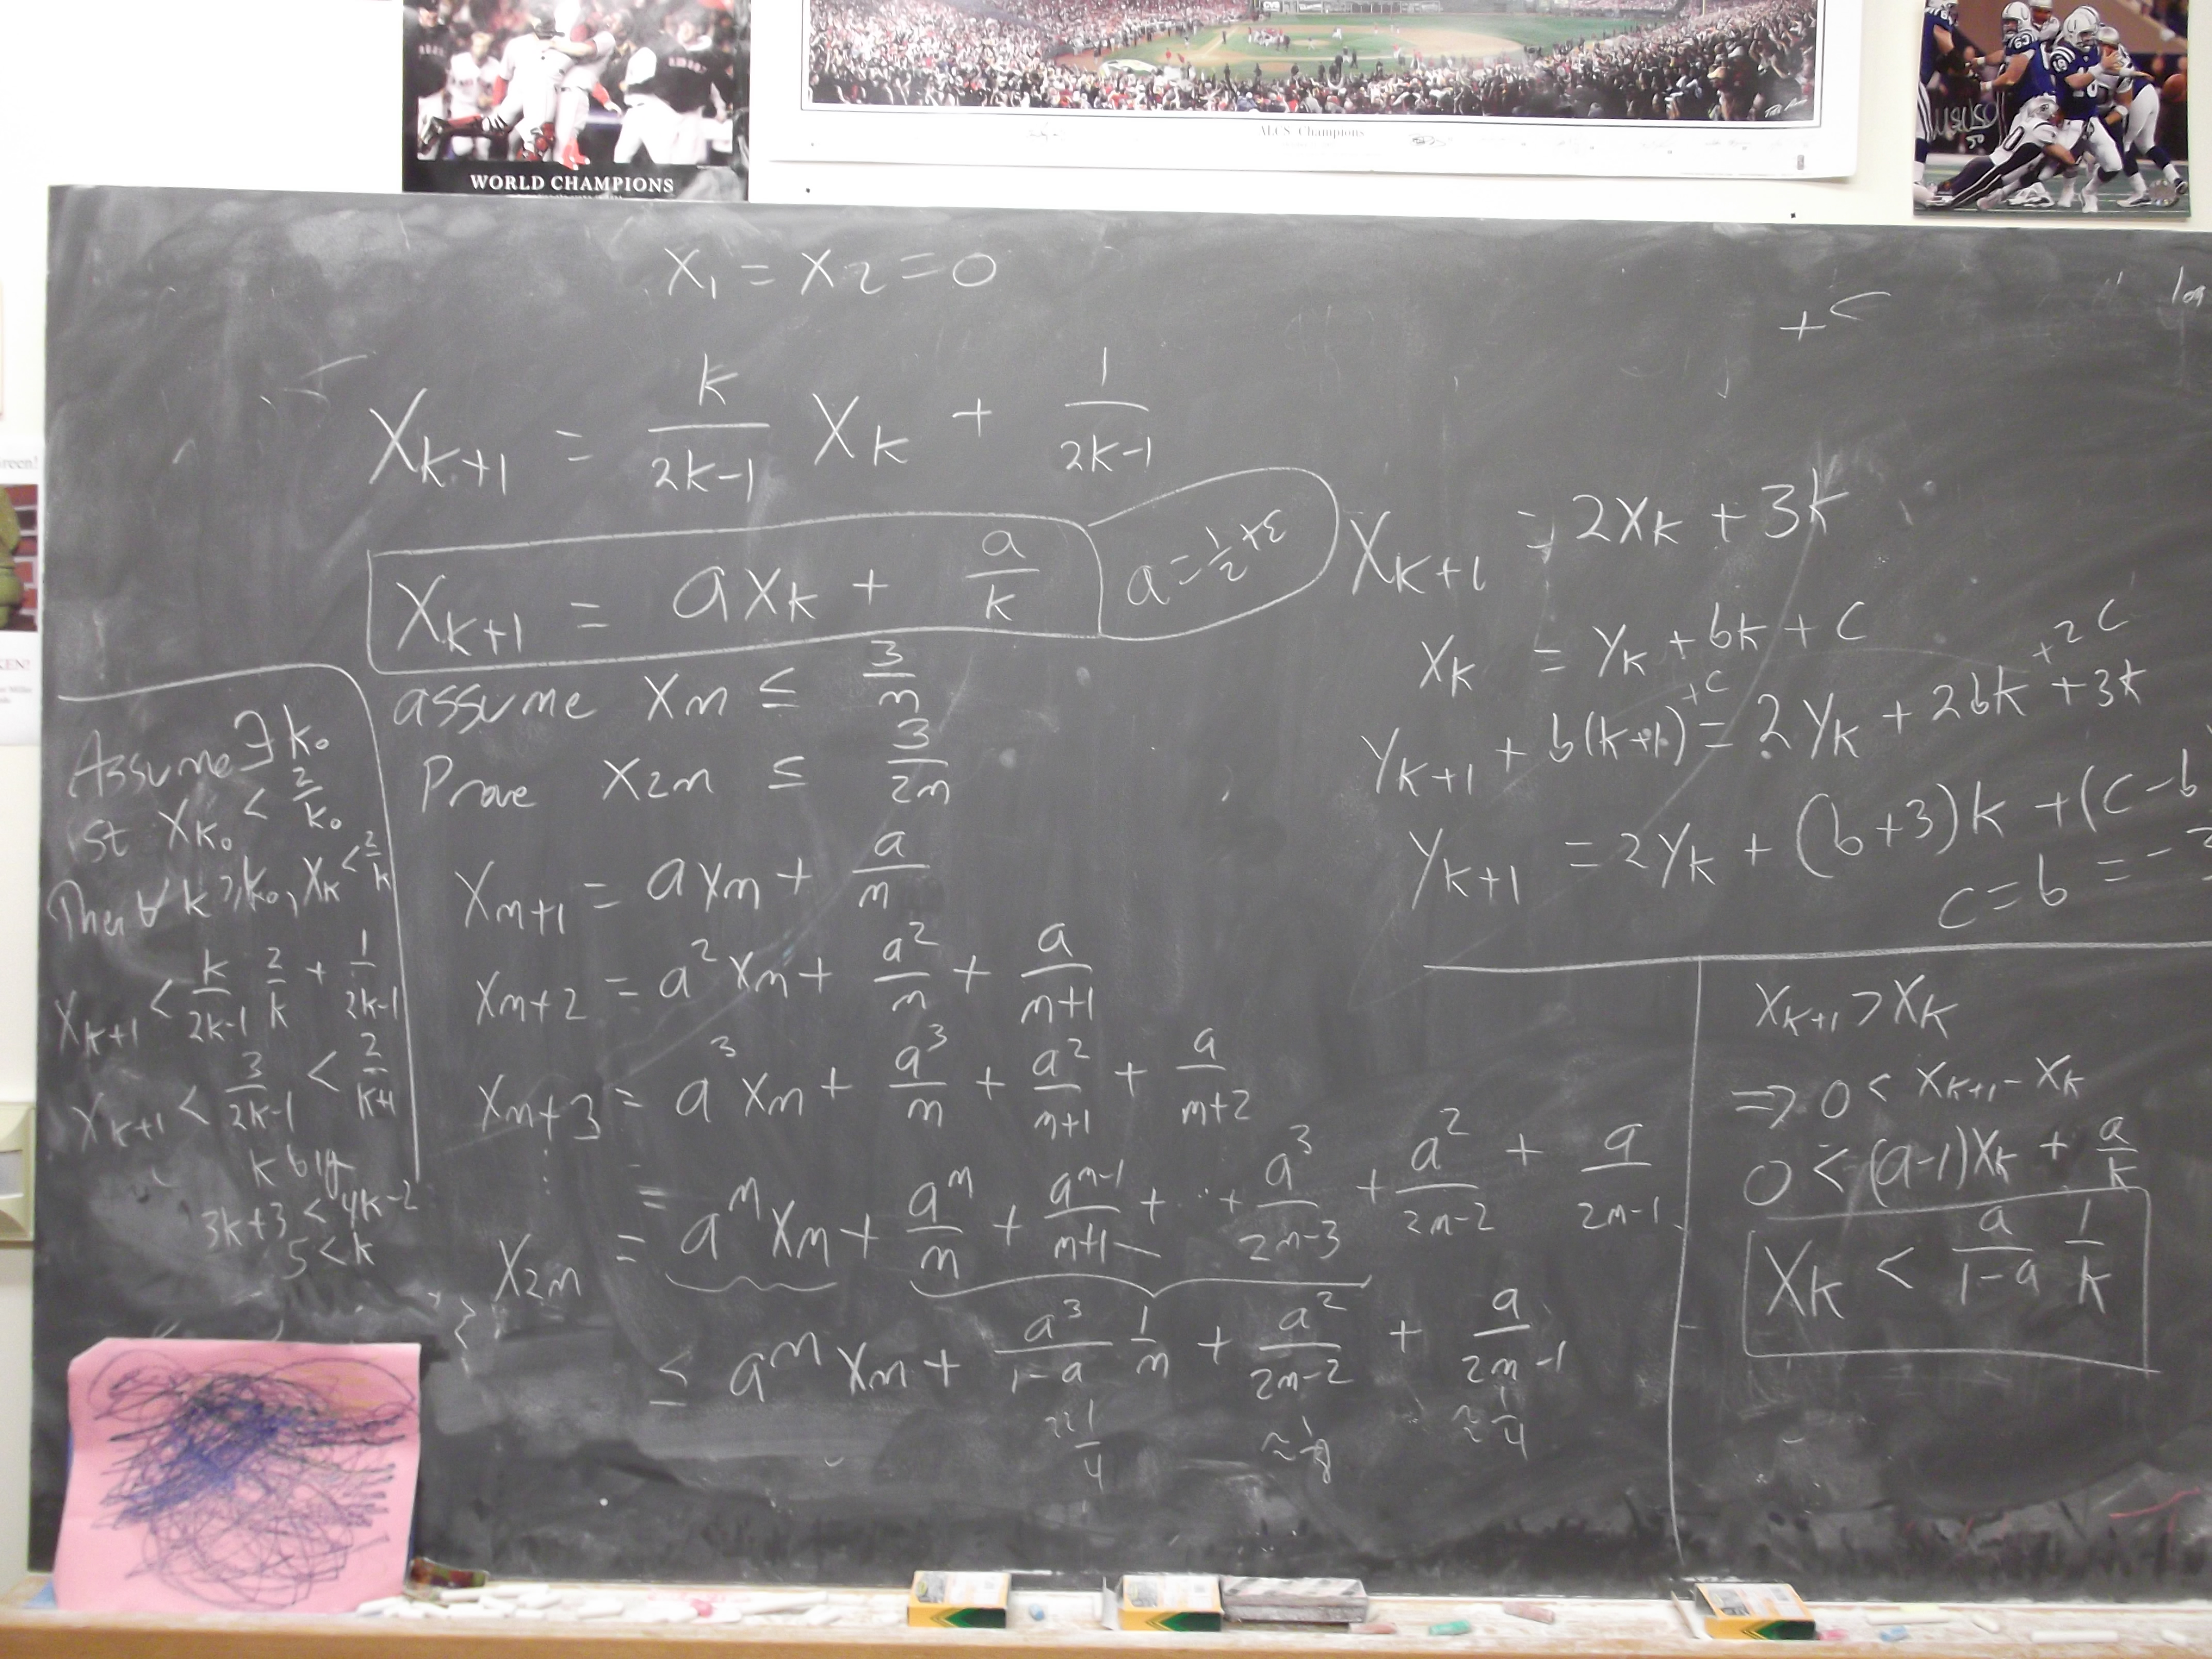 WORLD CHAMPIONS
ALCS Champions
x₁ = x₂ = 0
+ c
x_{k+1} = \frac{k}{2k-1} x_k + \frac{1}{2k-1}
x_{k+1} = a x_k + \frac{a}{k}
a = \frac{1}{2} + ε
assume x_m ≤ \frac{3}{m}
Prove x_{2m} ≤ \frac{3}{2m}
x_{m+1} = a x_m + \frac{a}{m}
x_{m+2} = a² x_m + \frac{a²}{m} + \frac{a}{m+1}
x_{m+3} = a³ x_m + \frac{a³}{m} + \frac{a²}{m+1} + \frac{a}{m+2}
⋮
x_{2m} = a^m x_m + \frac{a^m}{m} + \frac{a^{m-1}}{m+1} + ⋯ + \frac{a³}{2m-3} + \frac{a²}{2m-2} + \frac{a}{2m-1}
≤ a^m x_m + \frac{a³}{1-a} \frac{1}{m} + \frac{a²}{2m-2} + \frac{a}{2m-1}
≈ \frac{1}{4} ≈ \frac{1}{8} ≈ \frac{1}{4}
Assume ∃ k₀
st x_{k₀} < \frac{2}{k₀}
Then ∀ k ≥ k₀, x_k < \frac{2}{k}
x_{k+1} < \frac{k}{2k-1} \frac{2}{k} + \frac{1}{2k-1}
x_{k+1} < \frac{3}{2k-1} < \frac{2}{k+1}
k big
3k+3 < 4k-2
5 < k
x_{k+1} = 2x_k + 3k
x_k = y_k + bk + c
y_{k+1} + b(k+1) + c = 2y_k + 2bk + 2c + 3k
y_{k+1} = 2y_k + (b+3)k + (c-b
c = b = -3
x_{k+1} > x_k
⇒ 0 < x_{k+1} - x_k
0 < (a-1)x_k + \frac{a}{k}
x_k < \frac{a}{1-a} \frac{1}{k}